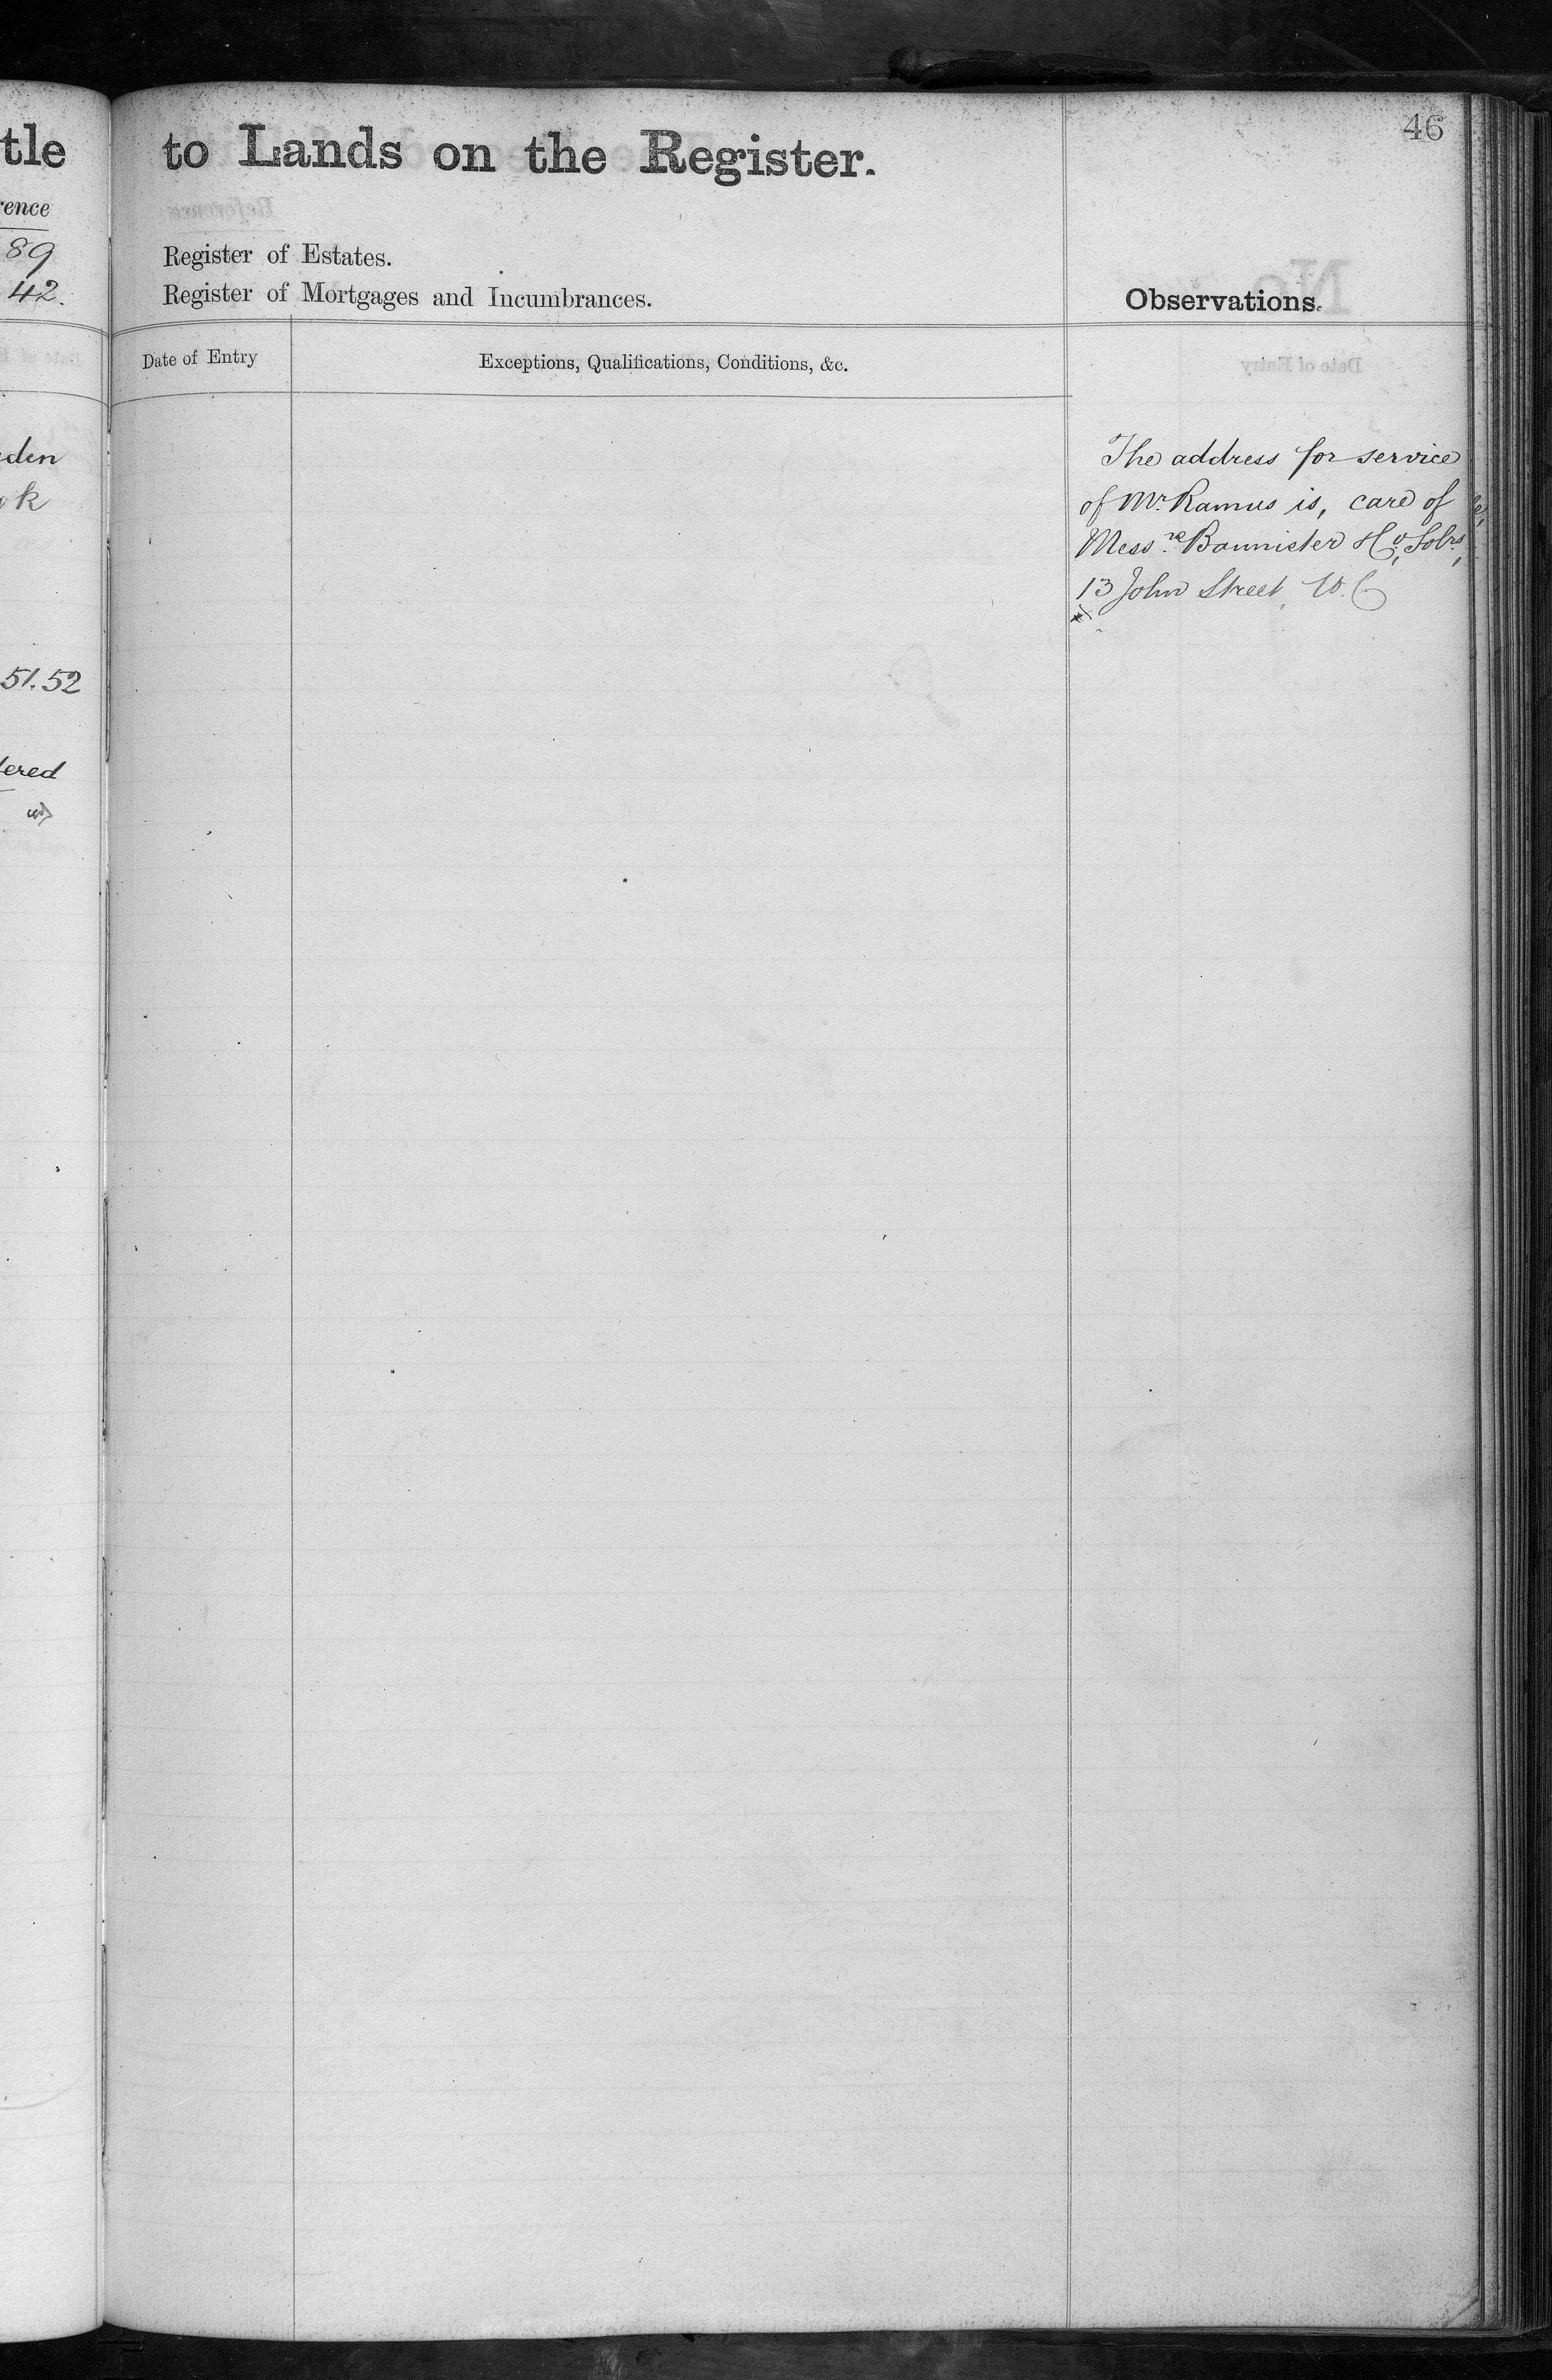 tle
rence
89
42.
den
ok
51.52
tered
46
to Lands on the Register.
Register of Estates.
Register of Mortgages and Incumbrances.
Observations.
Date of Entry
Exceptions, Qualifications, Conditions, &c.
The address for service
of Mr. Ramus is, care of
Messrs. Bannister & Co, Solrs,
13 John Street, W.C